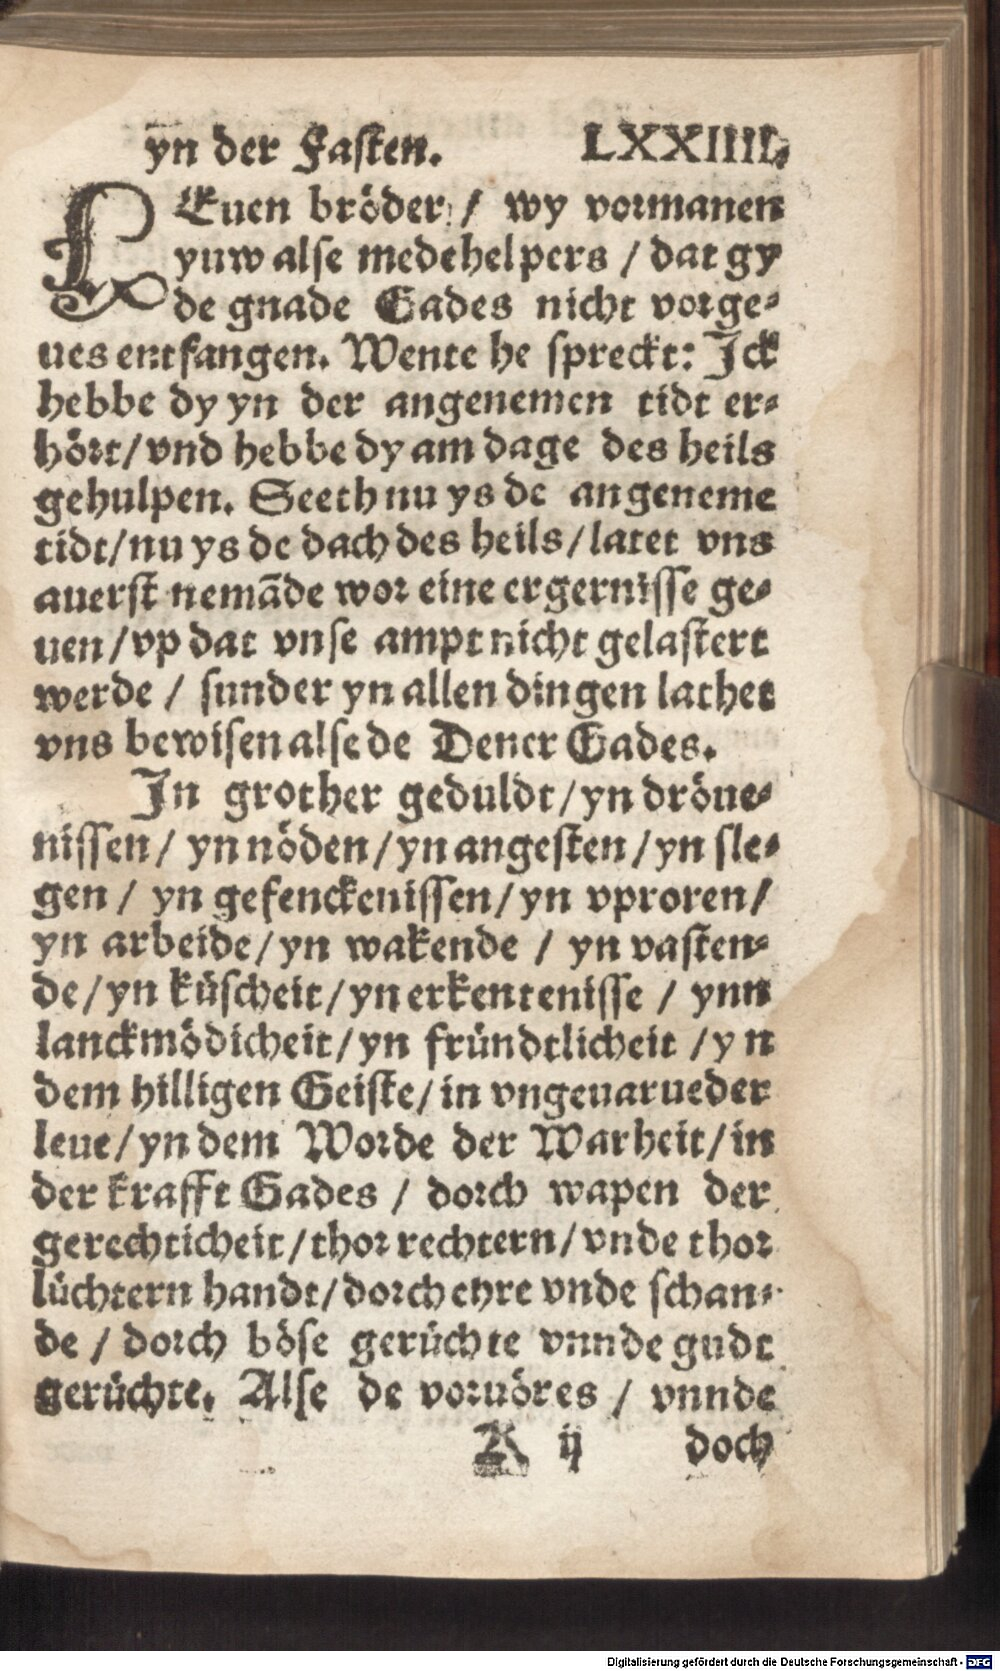 yn der Fasten. LXXIIII.
LEuen bröder / wy vormanen
yuw alse medehelpers / dat gy
de gnade Gades nicht vorge-
ues entfangen. Wente he spreckt: Ick
hebbe dy yn der angenemen tidt er-
hört / vnd hebbe dy am dage des heils
gehulpen. Seeth nu ys de angeneme
tidt / nu ys de dach des heils / latet vns
auerst nemāde wor eine ergernisse ge-
uen / vp dat vnse ampt nicht gelastert
werde / sunder yn allen dingen lathet
vns bewisen alse de Dener Gades.
In grother geduldt / yn dröue-
nissen / yn nöden / yn angesten / yn sle-
gen / yn gefenckenissen / yn vproren /
yn arbeide / yn wakende / yn vasten-
de / yn küscheit / yn erkentenisse / ynn
lanckmödicheit / yn fründtlicheit / yn
dem hilligen Geiste / in vngeuarueder
leue / yn dem Worde der Warheit / in
der krafft Gades / dorch wapen der
gerechticheit / thor rechtern / vnde thor
lüchtern handt / dorch ehre vnde schan-
de / dorch böse gerüchte vnnde gudt
gerüchte. Alse de voruöres / vnnde
K ij doch
Digitalisierung gefördert durch die Deutsche Forschungsgemeinschaft - DFG